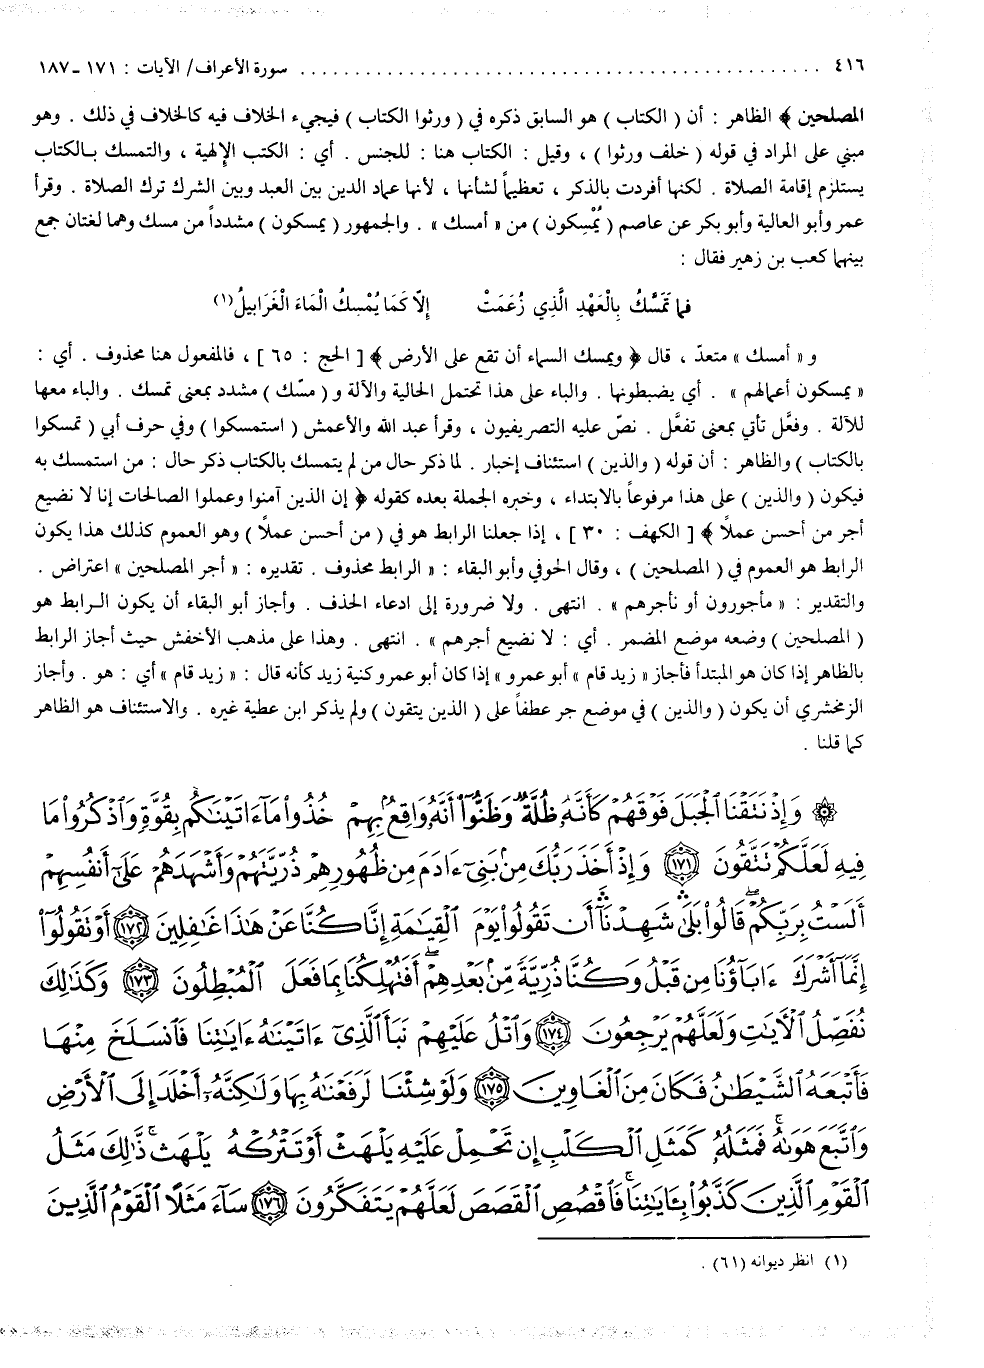 ٤١٦ ................................................ سورة الأعراف/ الآيات : ١٧١ ـ ١٨٧
المصلحين ﴾ الظاهر : أن ( الكتاب ) هو السابق ذكره في ( ورثوا الكتاب ) فيجيء الخلاف فيه كالخلاف في ذلك . وهو
مبني على المراد في قوله ( خلف ورثوا ) ، وقيل : الكتاب هنا : للجنس . أي : الكتب الإلهية ، والتمسك بالكتاب
يستلزم إقامة الصلاة . لكنها أفردت بالذكر ، تعظيماً لشأنها ، لأنها عماد الدين بين العبد وبين الشرك ترك الصلاة . وقرأ
عمر وأبو العالية وأبو بكر عن عاصم ( يُمْسِكون ) من « أمسك » . والجمهور ( يمسكون ) مشدداً من مسك وهما لغتان جمع
بينهما كعب بن زهير فقال :
فما تَمَسَّكُ بِالْعَهْدِ الَّذِي زُعَمَتْ إلّا كَمَا يُمْسِكُ الْمَاءَ الْغَرَابيلُ(١)
و « أمسك » متعدّ ، قال ﴿ ويمسك السماء أن تقع على الأرض ﴾ [ الحج : ٦٥ ] ، فالمفعول هنا محذوف . أي :
« يمسكون أعمالهم » . أي يضبطونها . والباء على هذا تحتمل الحالية والآلة و ( مسّك ) مشدد بمعنى تمسك . والباء معها
للآلة . وفعَّل تأتي بمعنى تفعَّل . نصّ عليه التصريفيون ، وقرأ عبد الله والأعمش ( استمسكوا ) وفي حرف أبي ( تمسكوا
بالكتاب ) والظاهر : أن قوله ( والذين ) استئناف إخبار . لما ذكر حال من لم يتمسك بالكتاب ذكر حال : من استمسك به
فيكون ( والذين ) على هذا مرفوعاً بالابتداء ، وخبره الجملة بعده كقوله ﴿ إن الذين آمنوا وعملوا الصالحات إنا لا نضيع
أجر من أحسن عملاً ﴾ [ الكهف : ٣٠ ] ، إذا جعلنا الرابط هو في ( من أحسن عملاً ) وهو العموم كذلك هذا يكون
الرابط هو العموم في ( المصلحين ) ، وقال الحوفي وأبو البقاء : « الرابط محذوف . تقديره : « أجر المصلحين » اعتراض .
والتقدير : « مأجورون أو نأجرهم » . انتهى . ولا ضرورة إلى ادعاء الحذف . وأجاز أبو البقاء أن يكون الرابط هو
( المصلحين ) وضعه موضع المضمر . أي : لا نضيع أجرهم » . انتهى . وهذا على مذهب الأخفش حيث أجاز الرابط
بالظاهر إذا كان هو المبتدأ فأجاز « زيد قام » أبو عمرو » إذا كان أبو عمرو كنية زيد كأنه قال : « زيد قام » أي : هو . وأجاز
الزمخشري أن يكون ( والذين ) في موضع جر عطفاً على ( الذين يتقون ) ولم يذكر ابن عطية غيره . والاستئناف هو الظاهر
كما قلنا .
۞ وَإِذْ نَتَقْنَا الْجَبَلَ فَوْقَهُمْ كَأَنَّهُۥ ظُلَّةٌ وَظَنُّوٓا۟ أَنَّهُۥ وَاقِعٌۢ بِهِمْ خُذُوا۟ مَآ ءَاتَيْنَـٰكُم بِقُوَّةٍ وَٱذْكُرُوا۟ مَا
فِيهِ لَعَلَّكُمْ تَتَّقُونَ ﴿١٧١﴾ وَإِذْ أَخَذَ رَبُّكَ مِنۢ بَنِىٓ ءَادَمَ مِن ظُهُورِهِمْ ذُرِّيَّتَهُمْ وَأَشْهَدَهُمْ عَلَىٰٓ أَنفُسِهِمْ
أَلَسْتُ بِرَبِّكُمْ ۖ قَالُوا۟ بَلَىٰ ۛ شَهِدْنَآ ۛ أَن تَقُولُوا۟ يَوْمَ ٱلْقِيَـٰمَةِ إِنَّا كُنَّا عَنْ هَـٰذَا غَـٰفِلِينَ ﴿١٧٢﴾ أَوْ تَقُولُوٓا۟
إِنَّمَآ أَشْرَكَ ءَابَآؤُنَا مِن قَبْلُ وَكُنَّا ذُرِّيَّةً مِّنۢ بَعْدِهِمْ ۖ أَفَتُهْلِكُنَا بِمَا فَعَلَ ٱلْمُبْطِلُونَ ﴿١٧٣﴾ وَكَذَٰلِكَ
نُفَصِّلُ ٱلْـَٔايَـٰتِ وَلَعَلَّهُمْ يَرْجِعُونَ ﴿١٧٤﴾ وَٱتْلُ عَلَيْهِمْ نَبَأَ ٱلَّذِىٓ ءَاتَيْنَـٰهُ ءَايَـٰتِنَا فَٱنسَلَخَ مِنْهَا
فَأَتْبَعَهُ ٱلشَّيْطَـٰنُ فَكَانَ مِنَ ٱلْغَاوِينَ ﴿١٧٥﴾ وَلَوْ شِئْنَا لَرَفَعْنَـٰهُ بِهَا وَلَـٰكِنَّهُۥٓ أَخْلَدَ إِلَى ٱلْأَرْضِ
وَٱتَّبَعَ هَوَىٰهُ ۚ فَمَثَلُهُۥ كَمَثَلِ ٱلْكَلْبِ إِن تَحْمِلْ عَلَيْهِ يَلْهَثْ أَوْ تَتْرُكْهُ يَلْهَث ۚ ذَّٰلِكَ مَثَلُ
ٱلْقَوْمِ ٱلَّذِينَ كَذَّبُوا۟ بِـَٔايَـٰتِنَا ۚ فَٱقْصُصِ ٱلْقَصَصَ لَعَلَّهُمْ يَتَفَكَّرُونَ ﴿١٧٦﴾ سَآءَ مَثَلًا ٱلْقَوْمُ ٱلَّذِينَ
(١) انظر ديوانه (٦١) .